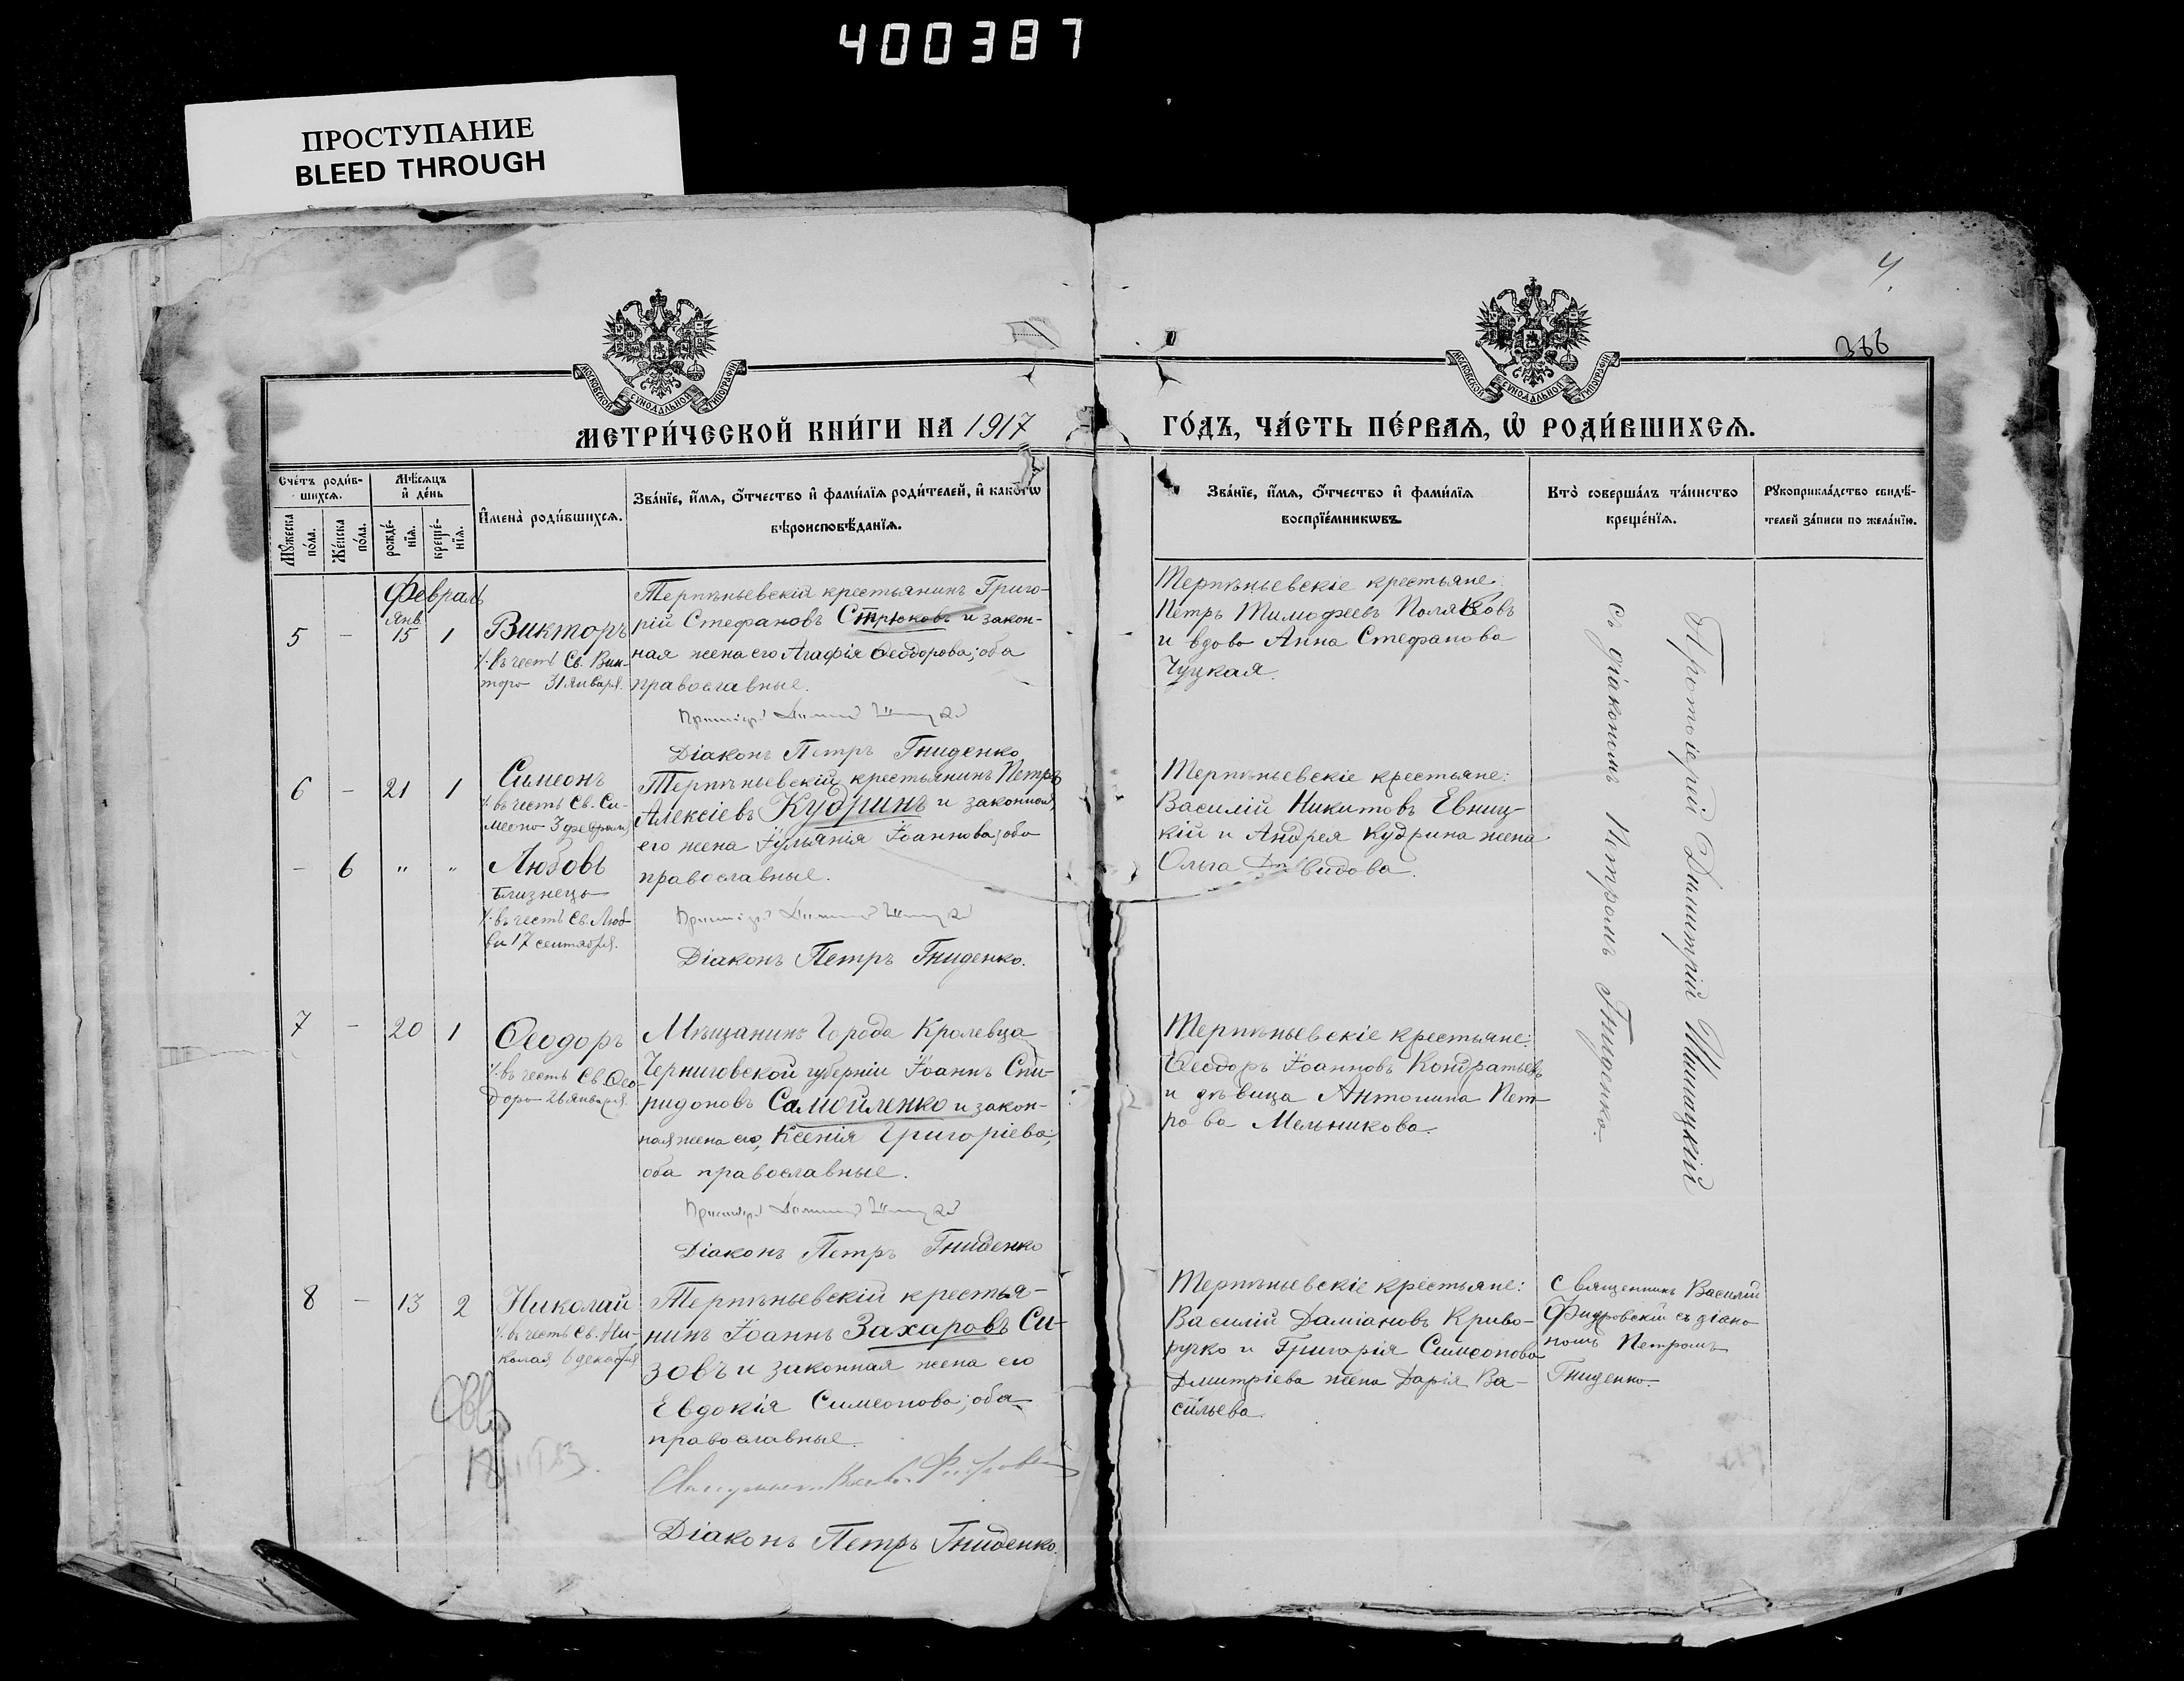 400387
ПРОСТУПАНИЕ
BLEED THROUGH
4.
386
МОСКОВСКОЙ СУНОДАЛЬНОЙ ТИПОГРАФІИ
МОСКОВСКОЙ СУНОДАЛЬНОЙ ТИПОГРАФІИ
МЕТРИ́ЧЕСКОЙ КНИ́ГИ НА 1917
ГО́ДЪ, ЧА́СТЬ ПЕ́РВАЯ, Ѡ҆ РОДИ́ВШИХСЯ.
Сче́тъ роди́в-
шихся.
Мꙋ́жеска
по́ла.
Же́нска
по́ла.
Мѣ́сяцъ
и҆ де́нь
рожде́-
нїя.
креще́-
нїя.
И҆мена̀ роди́вшихся.
Зва́нїе, и҆́мя, ѻ҆́тчество и҆ фами́лїя роди́телей, и҆ како́гѡ
вѣроисповѣ́данїя.
Зва́нїе, и҆́мя, ѻ҆́тчество и҆ фами́лїя
воспрїе́мникѡвъ.
Кто̀ соверша́лъ та́инство
креще́нїя.
Рꙋкоприкла́дство свидѣ́-
телей за́писи по жела́нїю.
Февраль
Янв.
5 - 15 1
Викторъ
въ честь Св. Вик-
тора 31 января.
Терпѣньевскій крестьянинъ Григо-
рій Стефановъ Стрюковъ и закон-
ная жена его Агафія Ѳеодорова; оба
православные.
Діаконъ Петръ Гниденко
Терпѣньевскіе крестьяне:
Петръ Тимоѳеевъ Поляковъ
и вдова Анна Стефанова
Чуцкая.
Протоіерей Димитрій Шишацкій
съ діакономъ Петромъ Гниденко.
6 - 21 1
Симеонъ
въ честь Св. Си-
меона 3 февраля
- 6 " "
Любовь
близнецъ
въ честь Св. Люб-
ви 17 сентября.
Терпѣньевскій крестьянинъ Петръ
Алексіевъ Кудринъ и законная
его жена Іуліанія Іоаннова; оба
православные.
Діаконъ Петръ Гниденко.
Терпѣньевскіе крестьяне:
Василій Никитовъ Евниц-
кій и Андрея Кудрина жена
Ольга Давидова.
7 - 20 1
Ѳеодоръ
въ честь Св. Ѳео-
дора 26 января
Мѣщанинъ города Кролевца
Черниговской губерніи Іоаннъ Спи-
ридоновъ Самойленко и закон-
ная жена его, Ксенія Григоріева;
оба православные.
Діаконъ Петръ Гниденко
Терпѣньевскіе крестьяне:
Ѳеодоръ Іоанновъ Кондратьевъ
и дѣвица Антонина Пет-
рова Мельникова.
8 - 13 2
Николай
въ честь Св. Ни-
колая 6 декабря
Терпѣньевскій крестья-
нинъ Іоаннъ Захаровъ Си-
зовъ и законная жена его
Евдокія Симеонова; оба
православные.
Діаконъ Петръ Гниденко.
Терпѣньевскіе крестьяне:
Василій Даміановъ Криво-
ручко и Григорія Симеонова
Дмитріева жена Дарія Ва-
сильева.
Священникъ Василій
съ діако-
номъ Петромъ
Гниденко.